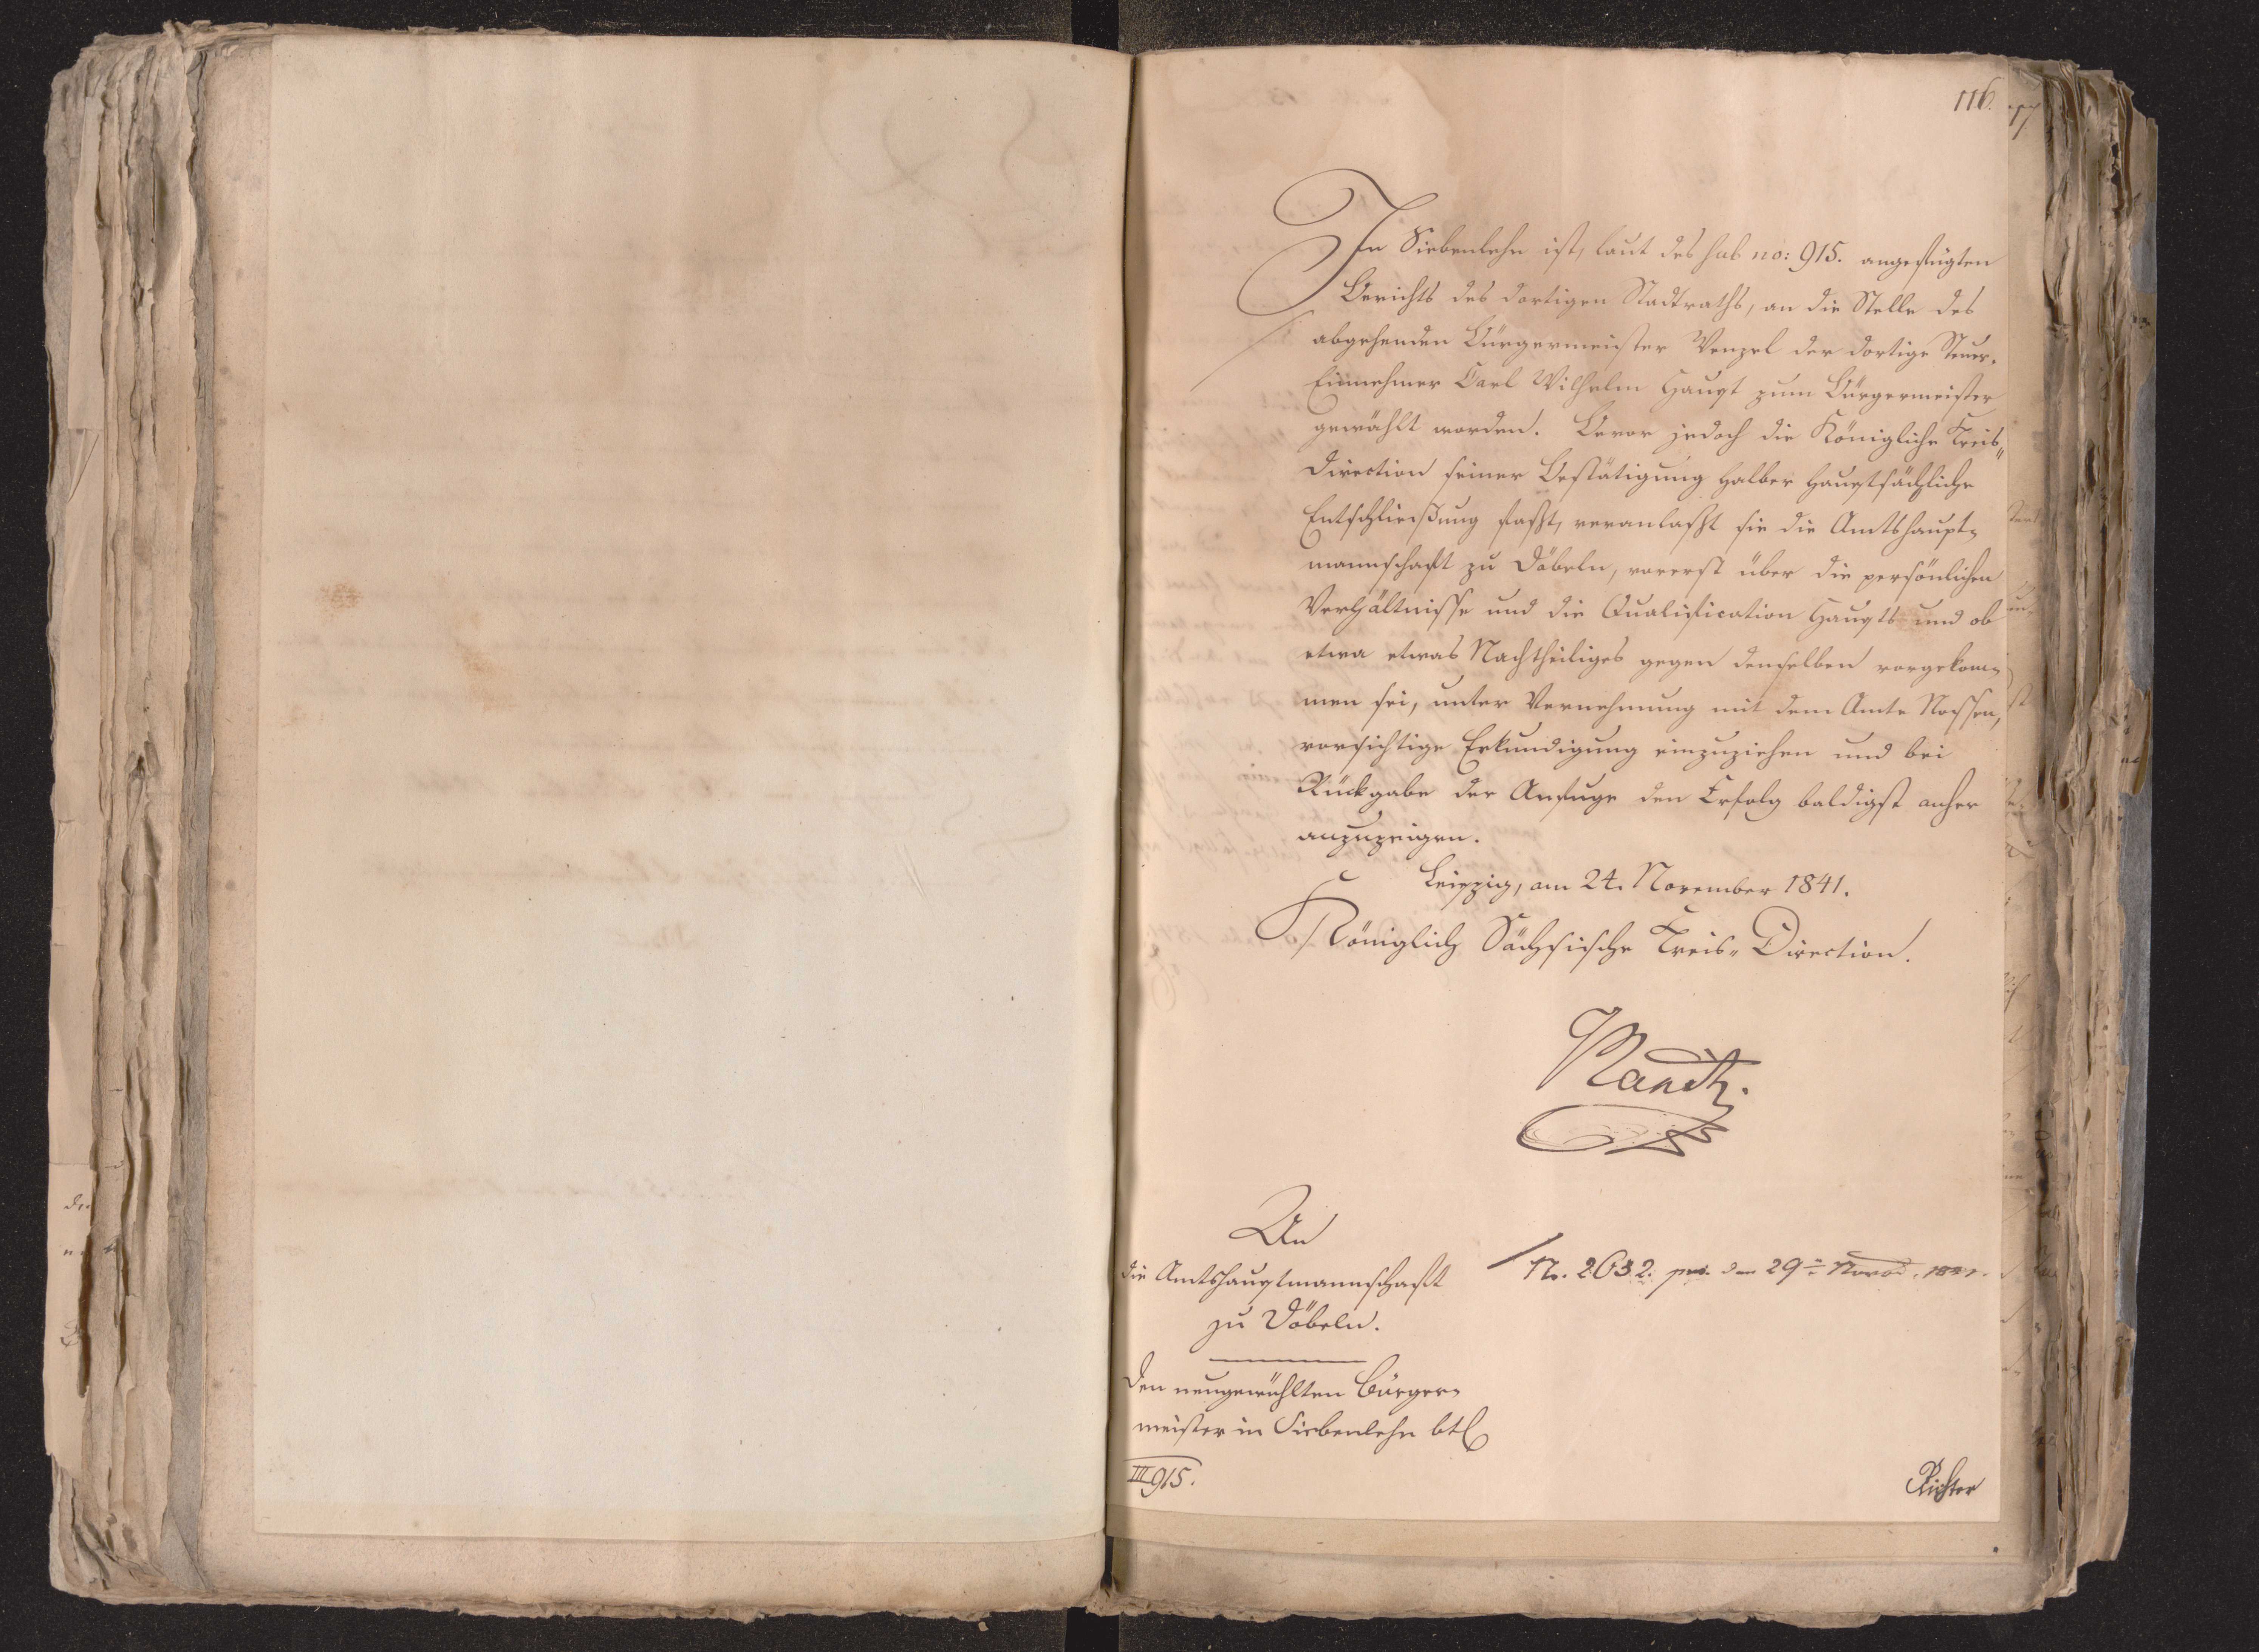 116.
In Siebenlehn ist, laut des sub no: 915. angefügten
Berichts des dortigen Stadtraths, an die Stelle des
abgehenden Bürgermeister Wenzel der dortige Steuer-
Einnehmer Carl Wilhelm Haupt zum Bürgermeister
gewählt worden. Bevor jedoch die Königliche Kreis-
Direction seiner Bestätigung halber hauptsächliche
Entschließung faßt, veranlaßt sie die Amtshaupt-
mannschaft zu Döbeln, vorerst über die persönlichen
Verhältnisse und die Qualification Haupts und ob
etwa etwas Nachtheiliges gegen denselben vorgekom-
men sei, unter Vernehmung mit dem Amte Nossen,
vorsichtige Erkundigung einzuziehen und bei
Rückgabe der Anfuge den Erfolg baldigst anher
anzuzeigen.
Leipzig, am 24. November 1841.
Königlich Sächsische Kreis-Direction.
An
die Amtshauptmannschaft
zu Döbeln.
N. 2632. pns. den 29n Novbr. 1841.
Den neugewählten Bürger-
meister in Siebenlehn btl
III 915.
Richter